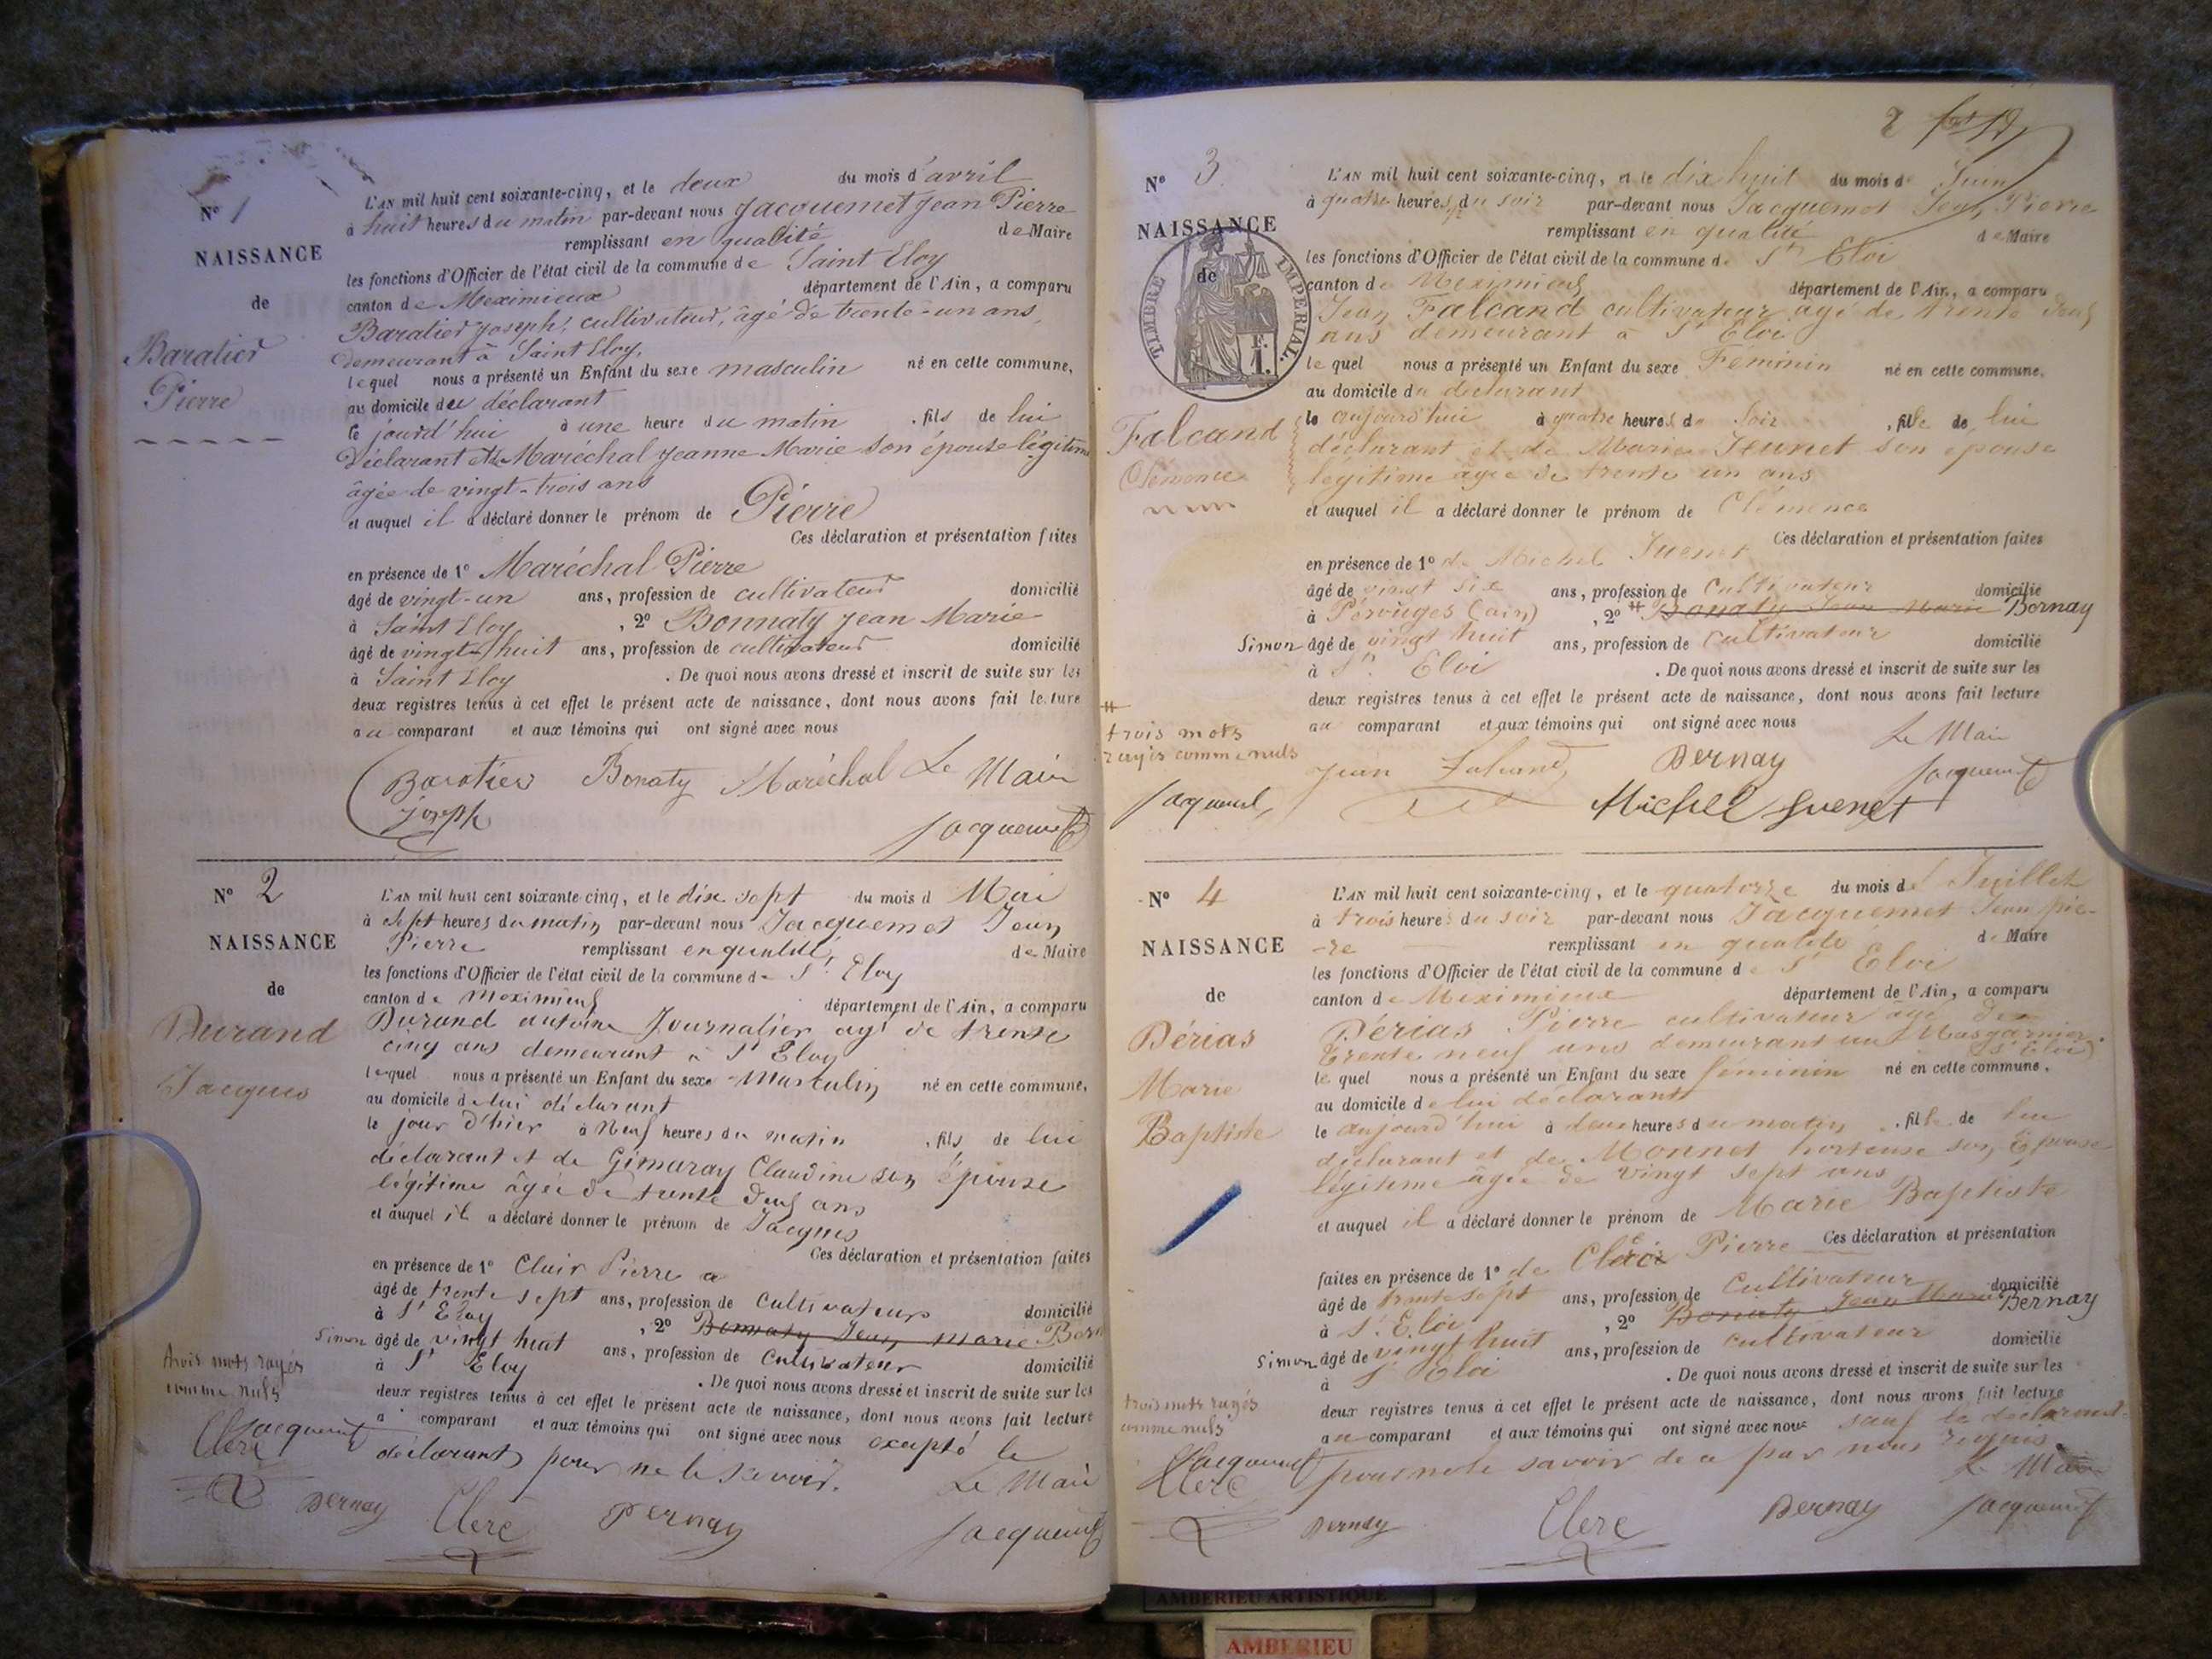 N° 1
NAISSANCE
de
Baratier
Pierre
L'AN mil huit cent soixante-cinq, et le deux du mois d'avril
à huit heures du matin par-devant nous Jacquemet Jean Pierre
remplissant en qualité de Maire
les fonctions d'Officier de l'état civil de la commune de Saint Eloy
canton de Meximieux département de l'Ain, a comparu
Baratier Joseph, cultivateur, âgé de trente-un ans,
demeurant à Saint Eloy,
lequel nous a présenté un Enfant du sexe masculin né en cette commune,
au domicile du déclarant
le jourd'hui à une heure du matin , fils de lui
Déclarant et de Maréchal Jeanne Marie son épouse légitime
âgée de vingt-trois ans
et auquel il a déclaré donner le prénom de Pierre
Ces déclaration et présentation faites
en présence de 1° Maréchal Pierre
âgé de vingt-un ans, profession de cultivateur domicilié
à Saint Eloy , 2° Bonnaty Jean Marie
âgé de vingt-huit ans, profession de cultivateur domicilié
à Saint Eloy . De quoi nous avons dressé et inscrit de suite sur les
deux registres tenus à cet effet le présent acte de naissance, dont nous avons fait lecture
au comparant et aux témoins qui ont signé avec nous
Baratier Bonaty Maréchal Le Maire
joseph
Jacquemet
N° 2
NAISSANCE
de
Durand
Jacques
L'AN mil huit cent soixante-cinq, et le dix sept du mois d Mai
à sept heures du matin par-devant nous Jacquemet Jean
Pierre remplissant en qualité de Maire
les fonctions d'Officier de l'état civil de la commune de St Eloy
canton de Meximieux département de l'Ain, a comparu
Durand antoine Journalier agé de trente
cinq ans demeurant à St Eloy
lequel nous a présenté un Enfant du sexe Masculin né en cette commune,
au domicile de lui déclarant
le jour d'hier à Neuf heures du matin , fils de lui
déclarant et de Gimaray Claudine son Epouse
légitime âgée de trente deux ans
et auquel il a déclaré donner le prénom de Jacques
Ces déclaration et présentation faites
en présence de 1° Clair Pierre
âgé de trente sept ans, profession de Cultivateur domicilié
à St Eloy , 2° Bonnaty Jean Marie Bern
Simon âgé de vingt huit ans, profession de Cultivateur domicilié
à St Eloy . De quoi nous avons dressé et inscrit de suite sur les
deux registres tenus à cet effet le présent acte de naissance, dont nous avons fait lecture
a comparant et aux témoins qui ont signé avec nous excepté le
déclarant pour ne le savoir.
Le Mair
trois mots rayés
comme nuls
Jacquemet
Clerc
Bernay Clerc Bernay Jacquemet
2
N° 3
NAISSANCE
de
TIMBRE IMPERIAL
F.
1.
Falcand
Clémence
L'AN mil huit cent soixante-cinq, et le dix huit du mois de Juin
à quatre heures du soir par-devant nous Jacquemet Jean Pierre
remplissant en qualité de Maire
les fonctions d'Officier de l'état civil de la commune de St Eloi
canton de Meximieux département de l'Ain, a comparu
Jean Falcand cultivateur agé de trente deux
ans demeurant à St Eloi
le quel nous a présenté un Enfant du sexe Feminin né en cette commune,
au domicile du déclarant
le aujourd'hui à quatre heures du Soir , fille de lui
déclarant et de Marie Juenet son épouse
légitime âgée de trente un ans
et auquel il a déclaré donner le prénom de Clémence
Ces déclaration et présentation faites
en présence de 1° de Michel Juenet
âgé de vingt six ans, profession de Cultivateur domicilié
à Pérouges (ain) , 2° # Bonaty Jean Marie Bernay
Simon âgé de vingt huit ans, profession de Cultivateur domicilié
à St Eloi . De quoi nous avons dressé et inscrit de suite sur les
deux registres tenus à cet effet le présent acte de naissance, dont nous avons fait lecture
au comparant et aux témoins qui ont signé avec nous
Le Mair
#
trois mots
rayés comme nuls
Jacquemet
Jean Falcand Bernay Jacquemet
Michel Juenet
N° 4
NAISSANCE
de
Périas
Marie
Baptiste
L'AN mil huit cent soixante-cinq, et le quatorze du mois de Juillet
à trois heures du soir par-devant nous Jacquemet Jean pier-
-re remplissant en qualité de Maire
les fonctions d'Officier de l'état civil de la commune de St Eloi
canton de Meximieux département de l'Ain, a comparu
Périas Pierre cultivateur agé de
trente neuf ans demeurant au Masgarnier
(St Eloi)
le quel nous a présenté un Enfant du sexe féminin né en cette commune,
au domicile de lui déclarant
le aujourd'hui à deux heures du matin , fille de lui
déclarant et de Monnet hortense son Epouse
légitime âgée de vingt sept ans
et auquel il a déclaré donner le prénom de Marie Baptiste
Ces déclaration et présentation
faites en présence de 1° de Clerc Pierre
âgé de trente sept ans, profession de Cultivateur domicilié
à St Eloi , 2° Bonaty Jean Marie Bernay
Simon âgé de vingt huit ans, profession de cultivateur domicilié
à St Eloi . De quoi nous avons dressé et inscrit de suite sur les
deux registres tenus à cet effet le présent acte de naissance, dont nous avons fait lecture
au comparant et aux témoins qui ont signé avec nous sauf le déclarant
pour ne le savoir de a par nous requis.
Le Mair
trois mots rayés
comme nuls
Jacquemet
Clerc
Bernay Clerc Bernay Jacquemet
AMBERIEU ARTISTIQUE
AMBERIEU